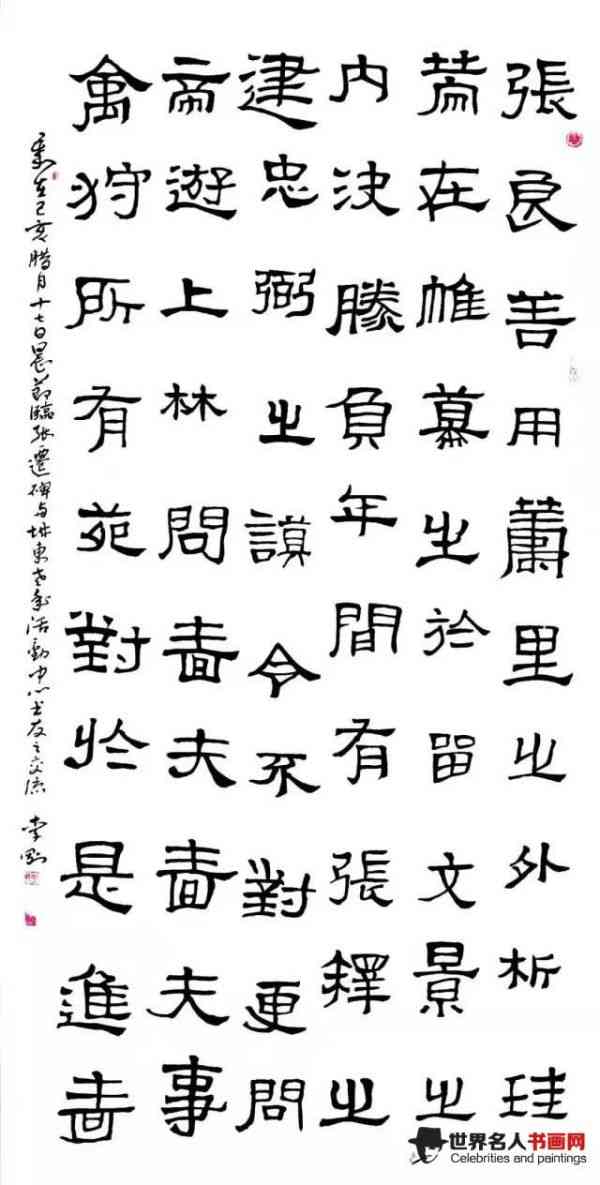 張良善用籌里之外析珪
策在帷幕之於留文景之
内決勝負年間有張釋之
建忠弼之謨令不對更問
帝遊上林問嗇夫嗇夫事
禽狩所有苑對於是進嗇
歲在己亥腊月十七日晨節臨張遷碑与城東老年活動中心书友之交流 李剛
世界名人书画网
Celebrities and paintings